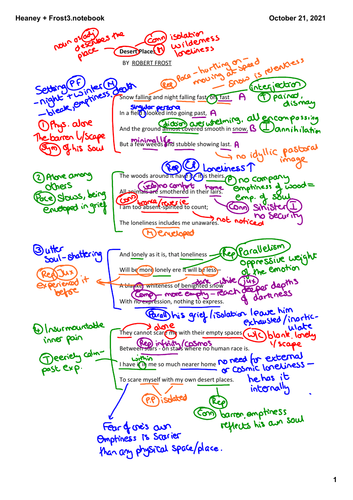 Heaney + Frost3.notebook
October 21, 2021
noun or adj
describes the
place
Conn isolation
wilderness
loneliness
Desert Places
BY ROBERT FROST
Rep
Pace - hurtling on -
moving at speed
Snow is relentless
Interjection
T pained,
dismay
Setting PF
- night + winter
- bleak, emptiness, death
Snow falling and night falling fast, oh, fast A
Singular persona
In a field I looked into going past, A
diction overwhelming, all encompassing
And the ground almost covered smooth in snow, B
T annihilation
minimal life
But a few weeds and stubble showing last. A
no idyllic pastoral
image
① Phys. alone
The barren L/scape
Sym of his soul
Rep
Loneliness ↑
② Alone among
others
Pace Slows, being
enveloped in grief
The woods around it have it - it is theirs.
no company
no comfort
home
Emptiness of wood =
emp. of soul
All animals are smothered in their lairs.
Conn
Conn Sinister I
no security
I am too absent-spirited to count;
not noticed
The loneliness includes me unawares.
M enveloped
③ utter
Soul-shattering
Rep Jux
Experienced it
before
And lonely as it is, that loneliness
Rep Parallelism
oppressive weight
of the emotion
Will be more lonely ere it will be less -
Jux
A blanker whiteness of benighted snow
Comp - more empty - reach deeper depths
of darkness
With no expression, nothing to express.
Parall his grief/isolation leave him
exhausted/inartic-
ulate
④ Insurmountable
inner pain
T eerily calm -
past exp.
↑ alone
They cannot scare me with their empty spaces
C/C blank lonely
L/scape
Rep infinity/cosmos
Between stars - on stars where no human race is.
within
I have it in me so much nearer home
no need for external
or cosmic loneliness -
he has it
internally
To scare myself with my own desert places.
PP isolated
Rep
Conn barren, emptiness
reflects his own soul
Fear of one's own
Emptiness is scarier
than any physical space/place.
1